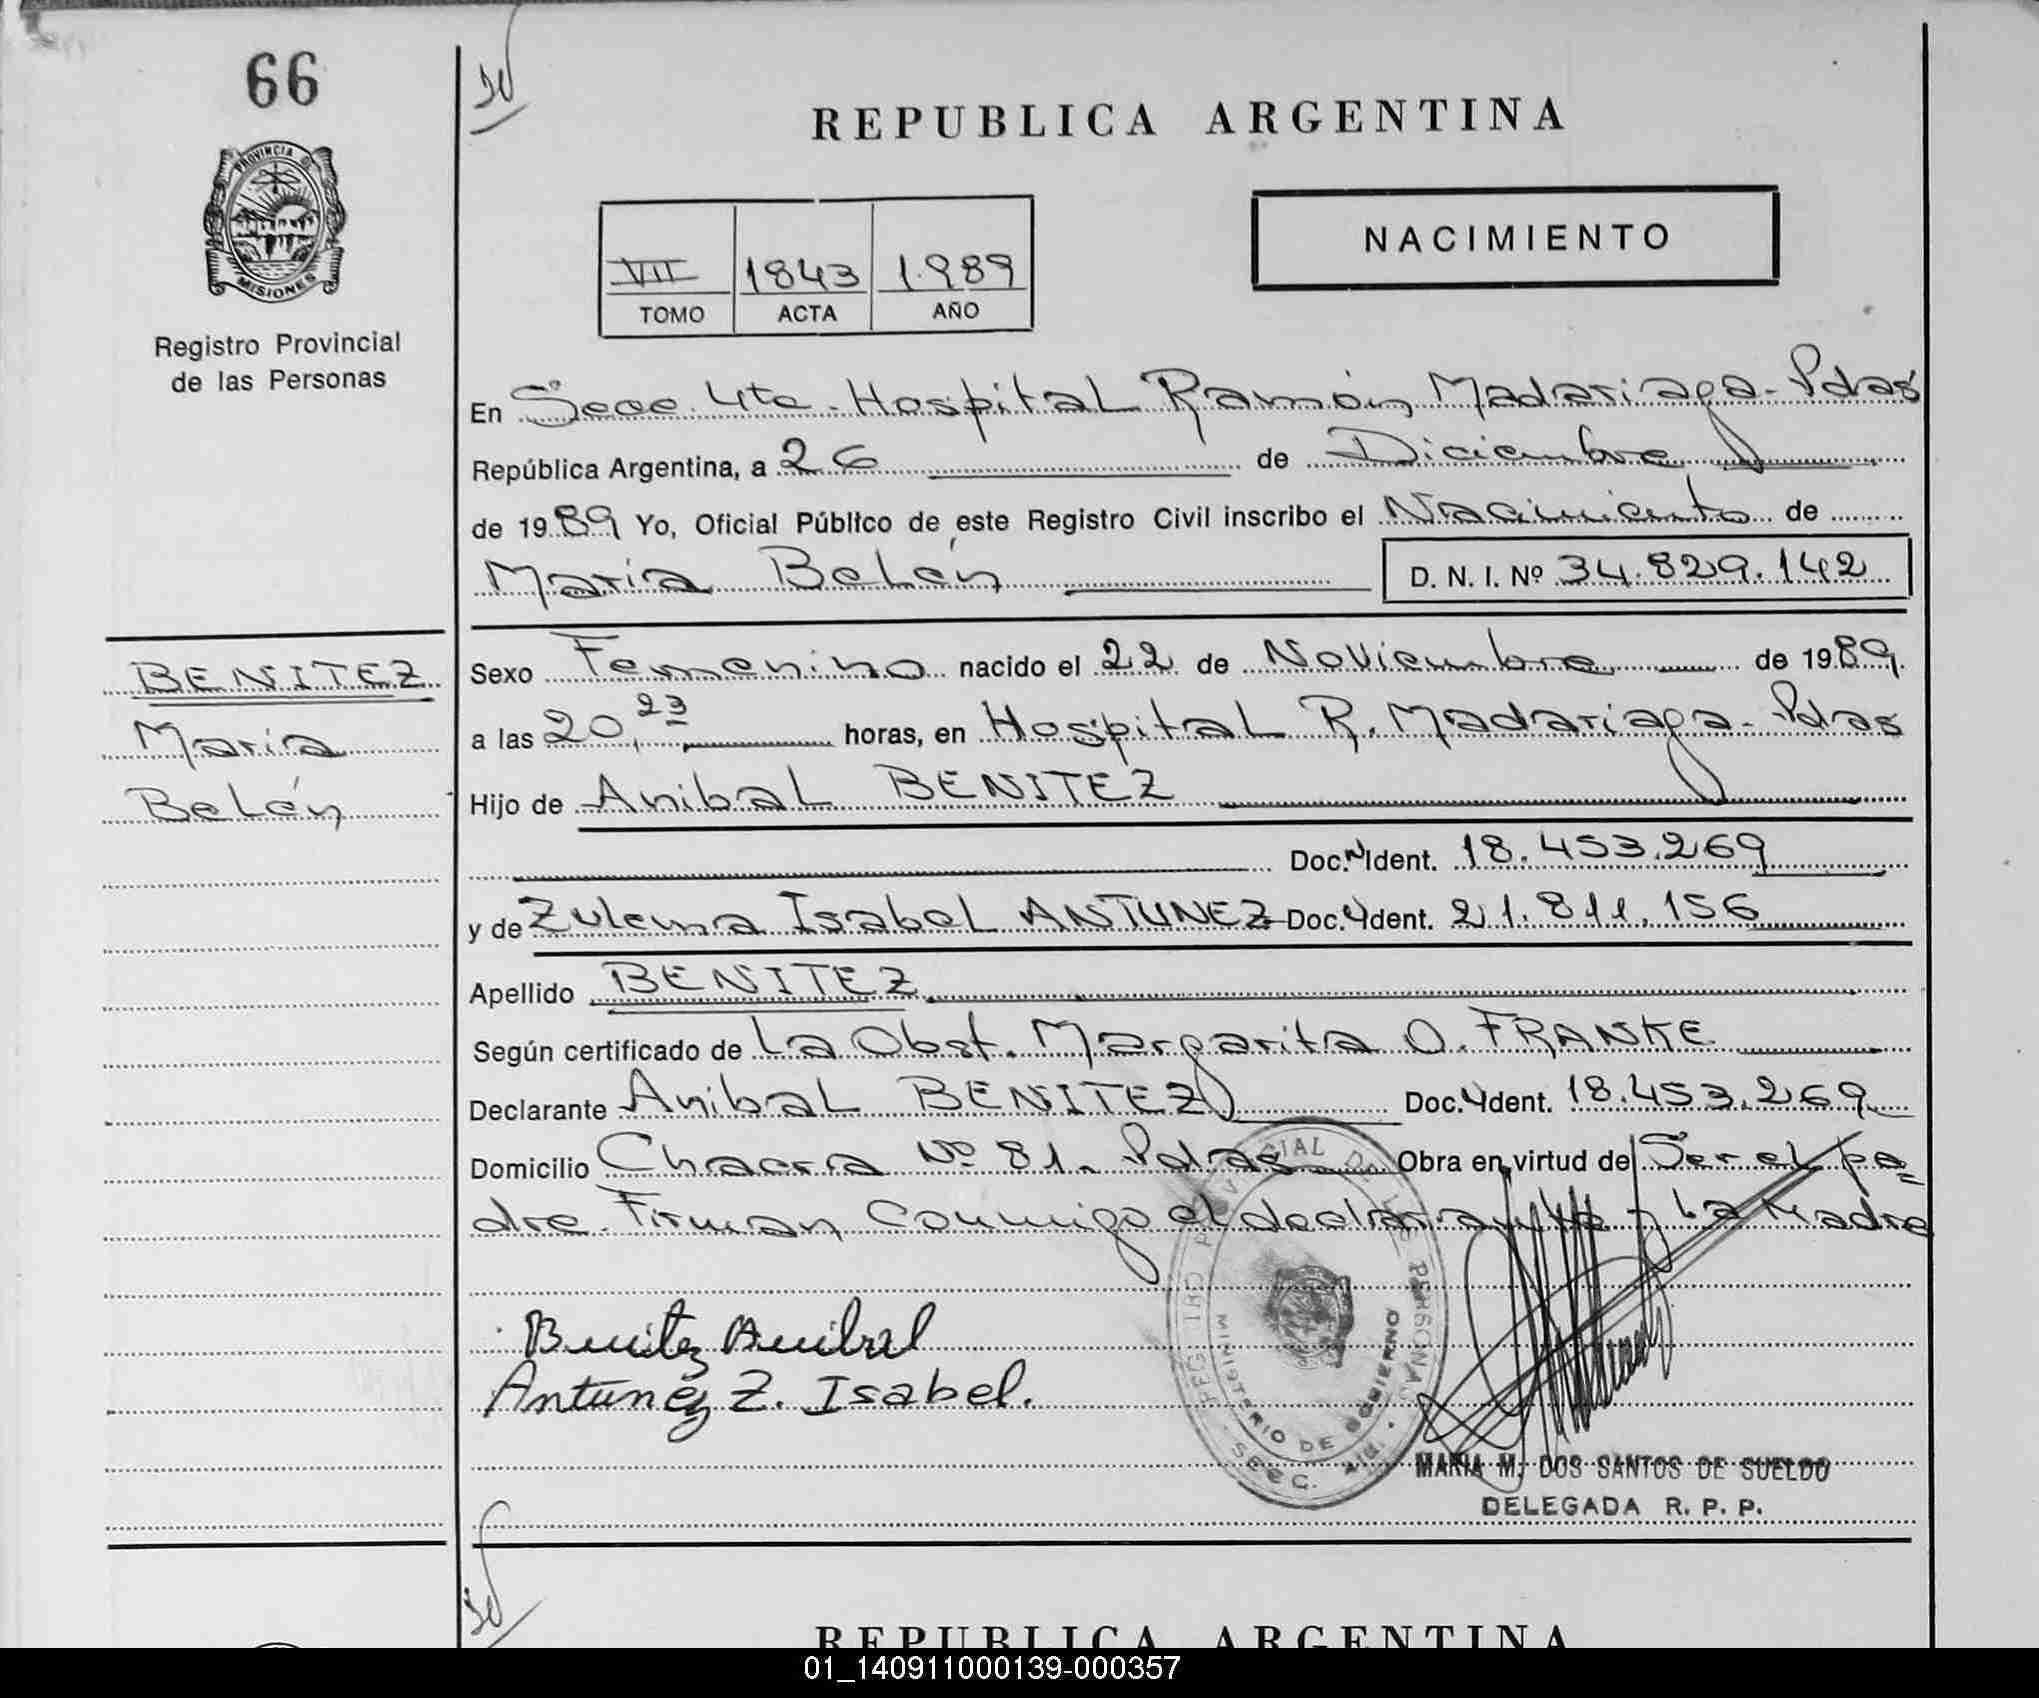 66
PROVINCIA DE
MISIONES
Registro Provincial
de las Personas
REPUBLICA ARGENTINA
VII 1843 1989
TOMO ACTA AÑO
NACIMIENTO
En Secc. 4ta. Hospital Ramón Madariaga - Pdas
República Argentina, a 26 de Diciembre
de 1989 Yo, Oficial Público de este Registro Civil inscribo el Nacimiento de
María Belén D. N. I. Nº 34.829.142
BENITEZ
María
Belén
Sexo Femenino nacido el 22 de Noviembre de 1989
a las 20,23 horas, en Hospital R. Madariaga - Pdas
Hijo de Anibal BENITEZ
Doc. Ident. 18.453.269
y de Zulema Isabel ANTUNEZ Doc. Ident. 21.811.156
Apellido BENITEZ
Según certificado de La Obst. Margarita O. FRANKE
Declarante Anibal BENITEZ Doc. Ident. 18.453.269
Domicilio Chacra Nº 81. Pdas Obra en virtud de Ser el pa=
dre. Firman Conmigo el declarante y La Madre
Benitez Anibal
Antunez Z. Isabel.
REGISTRO PROVINCIAL DE LAS PERSONAS
MINISTERIO DE GOBIERNO
SECC.
MARIA M. DOS SANTOS DE SUELDO
DELEGADA R. P. P.
REPUBLICA ARGENTINA
01_140911000139-000357